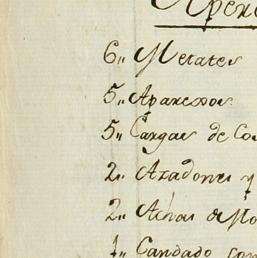 Apero
6,, Metates
5,, Aparexos
5,, Cargas de Co
2,, Azadones y
2,, Achas de Mo
1,, Candado con